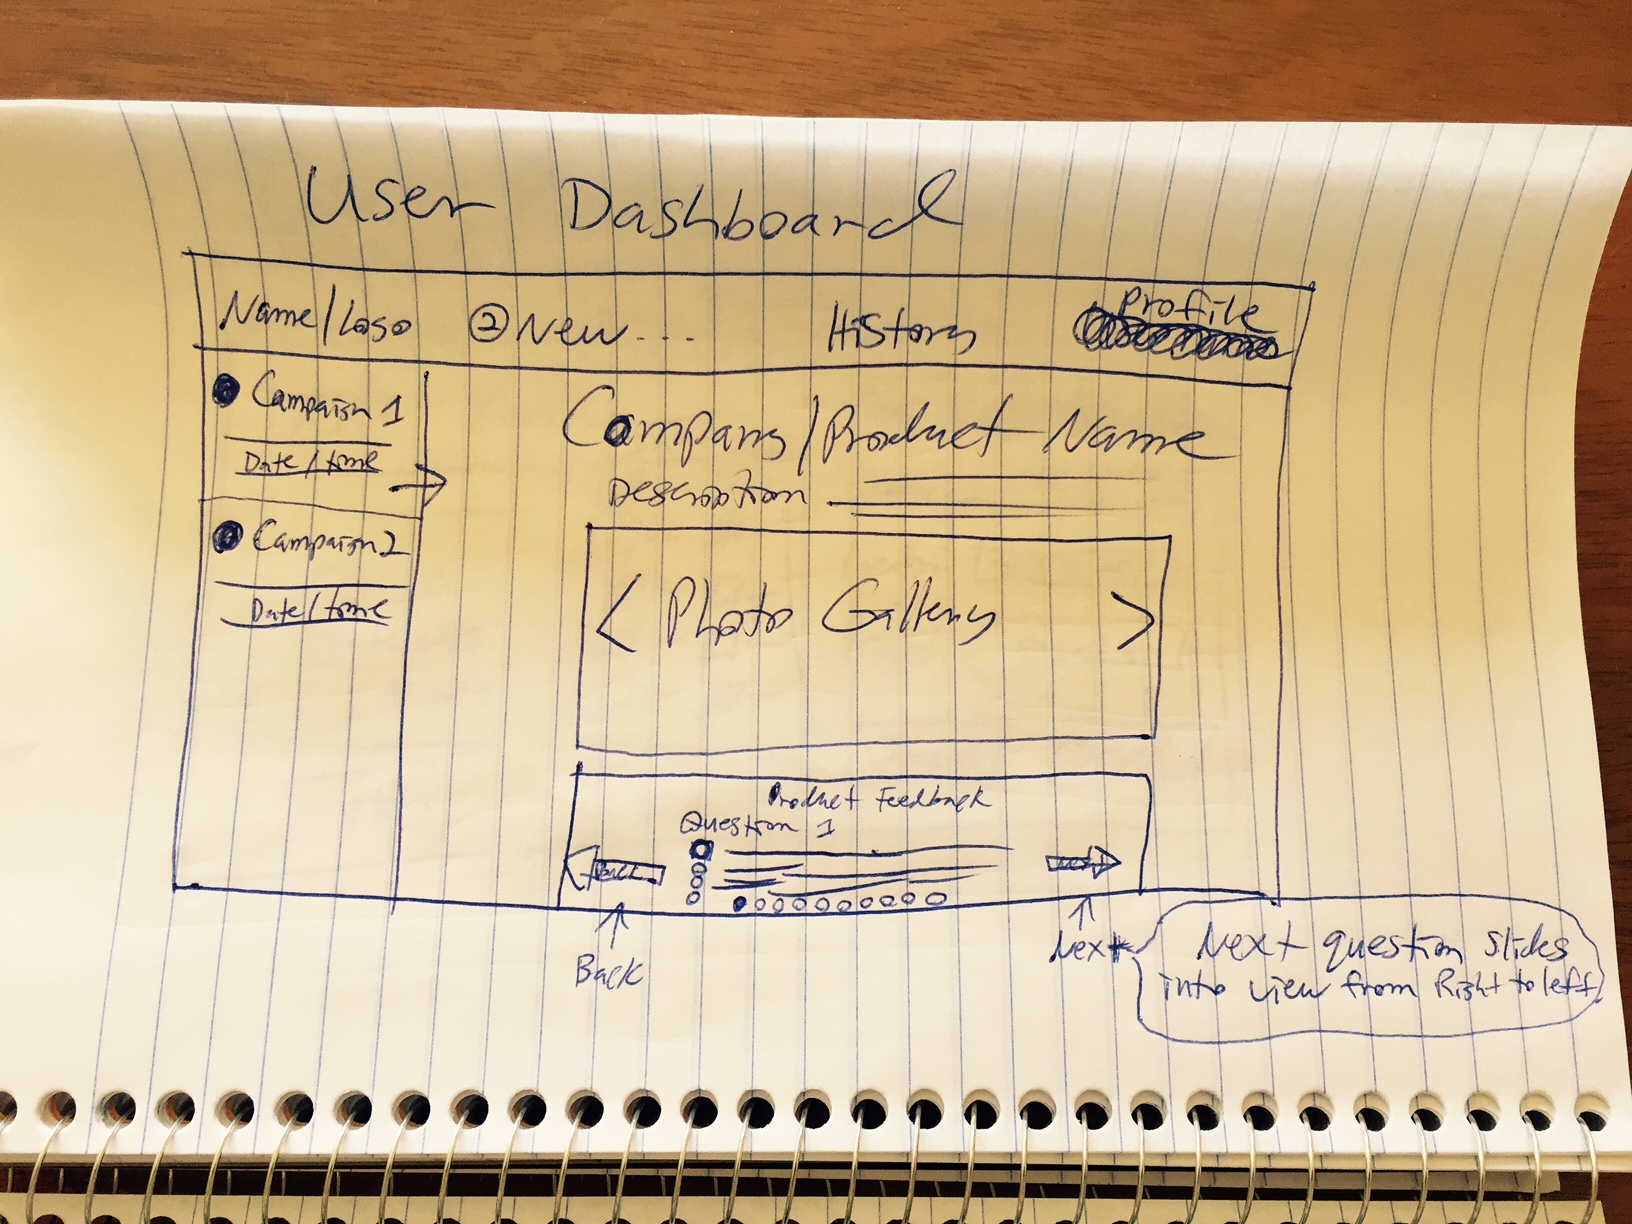 User Dashboard
Name/Logo ② New... History Profile
Campaign 1
Date/time
Campaign 2
Date/time
Company/Product Name
Description
< Photo Gallery >
Product Feedback
Question 1
Back Next
Back
Next
Next question slides
into view from Right to left